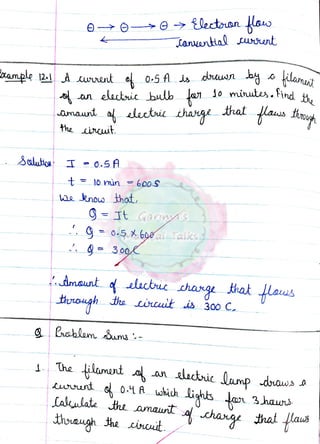 ⊖ → ⊖ → ⊖ → Electron flow
Convential current
Example 12.1 A current of 0.5 A is drawn by a filament
of an electric bulb for 10 minutes. Find the
amount of electric charge that flows through
the circuit.
Solution I = 0.5 A
t = 10 min = 600 S
We know that,
Q = It
∴ Q = 0.5 X 600
∴ Q = 300 C
Garima's
Talks
∴ Amount of electric charge that flows
through the circuit is 300 C.
Q Problem Sums :-
1. The filament of an electric lamp draws a
current of 0.4 A which lights for 3 hours.
Calculate the amount of charge that flows
through the circuit.